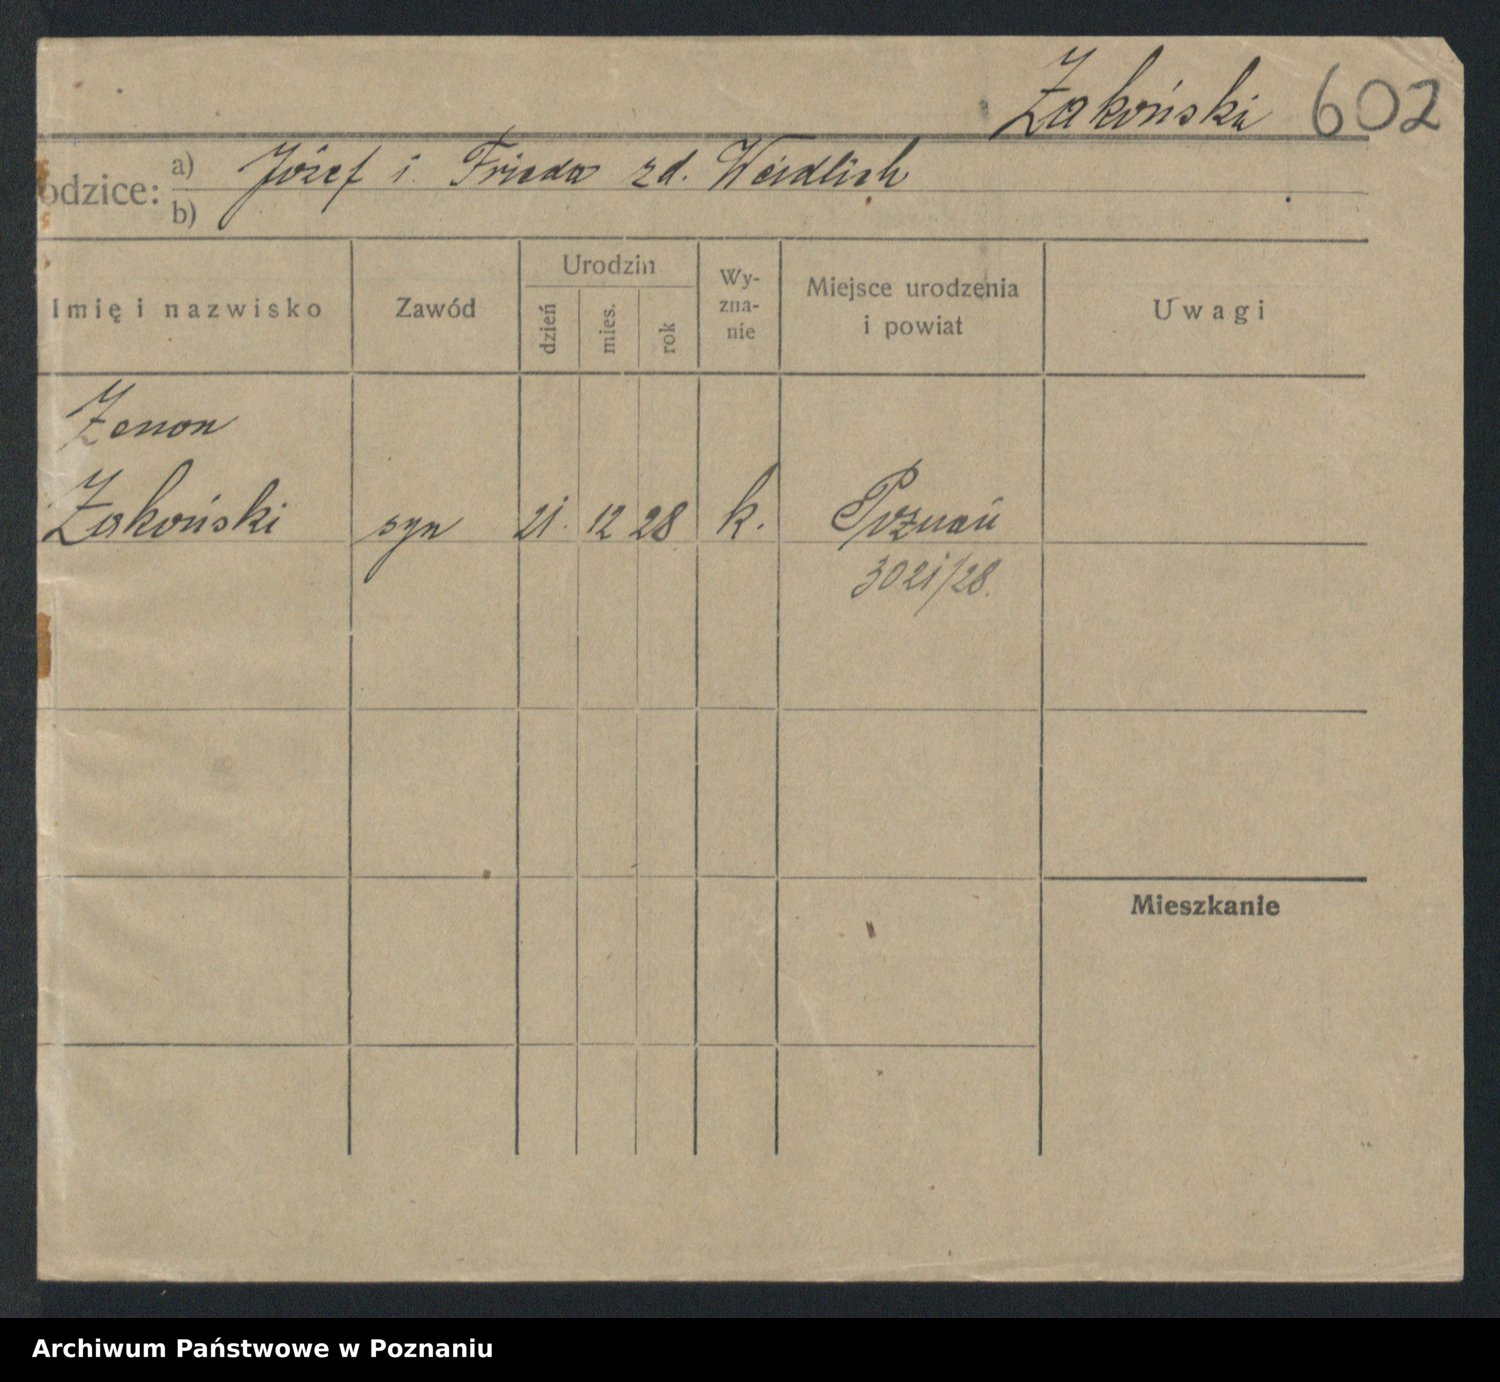 Zakoński 602
odzice: a) Józef i Frieda zd. Weidlich
b)
Imię i nazwisko Zawód Urodzin dzień mies. rok Wy-zna-nie Miejsce urodzenia i powiat Uwagi
Zenon
Zakoński syn 21. 12 28 k. Poznań
3021/28.
Mieszkanie
Archiwum Państwowe w Poznaniu